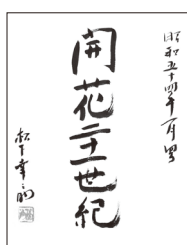 昭和五十四年一月
開花二十一世紀
松下幸之助